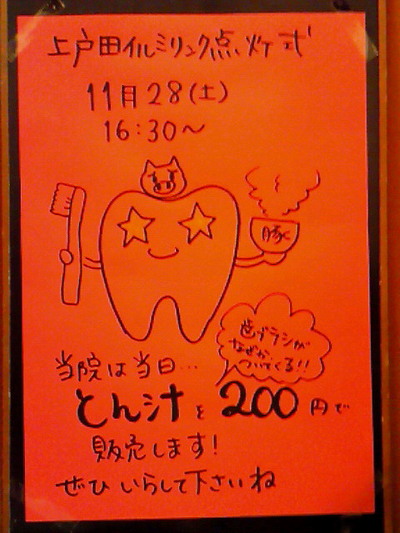 上戸田イルミリンク点灯式
11月28(土)
16:30〜
豚
歯ブラシが
なぜか、
ついてくる!!
当院は当日…
とん汁を200円で
販売します!
ぜひいらして下さいね